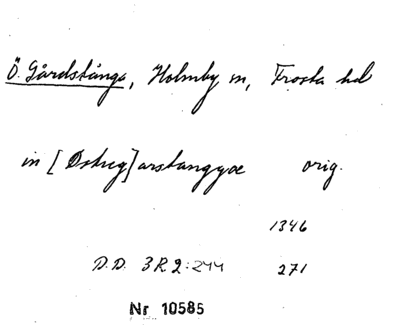 Ö. Gårdstånga, Holmby sn, Frosta hd
in [Østreg]arstanggyæ orig.
1346
D.D. 3R2:244 271
Nr 10585